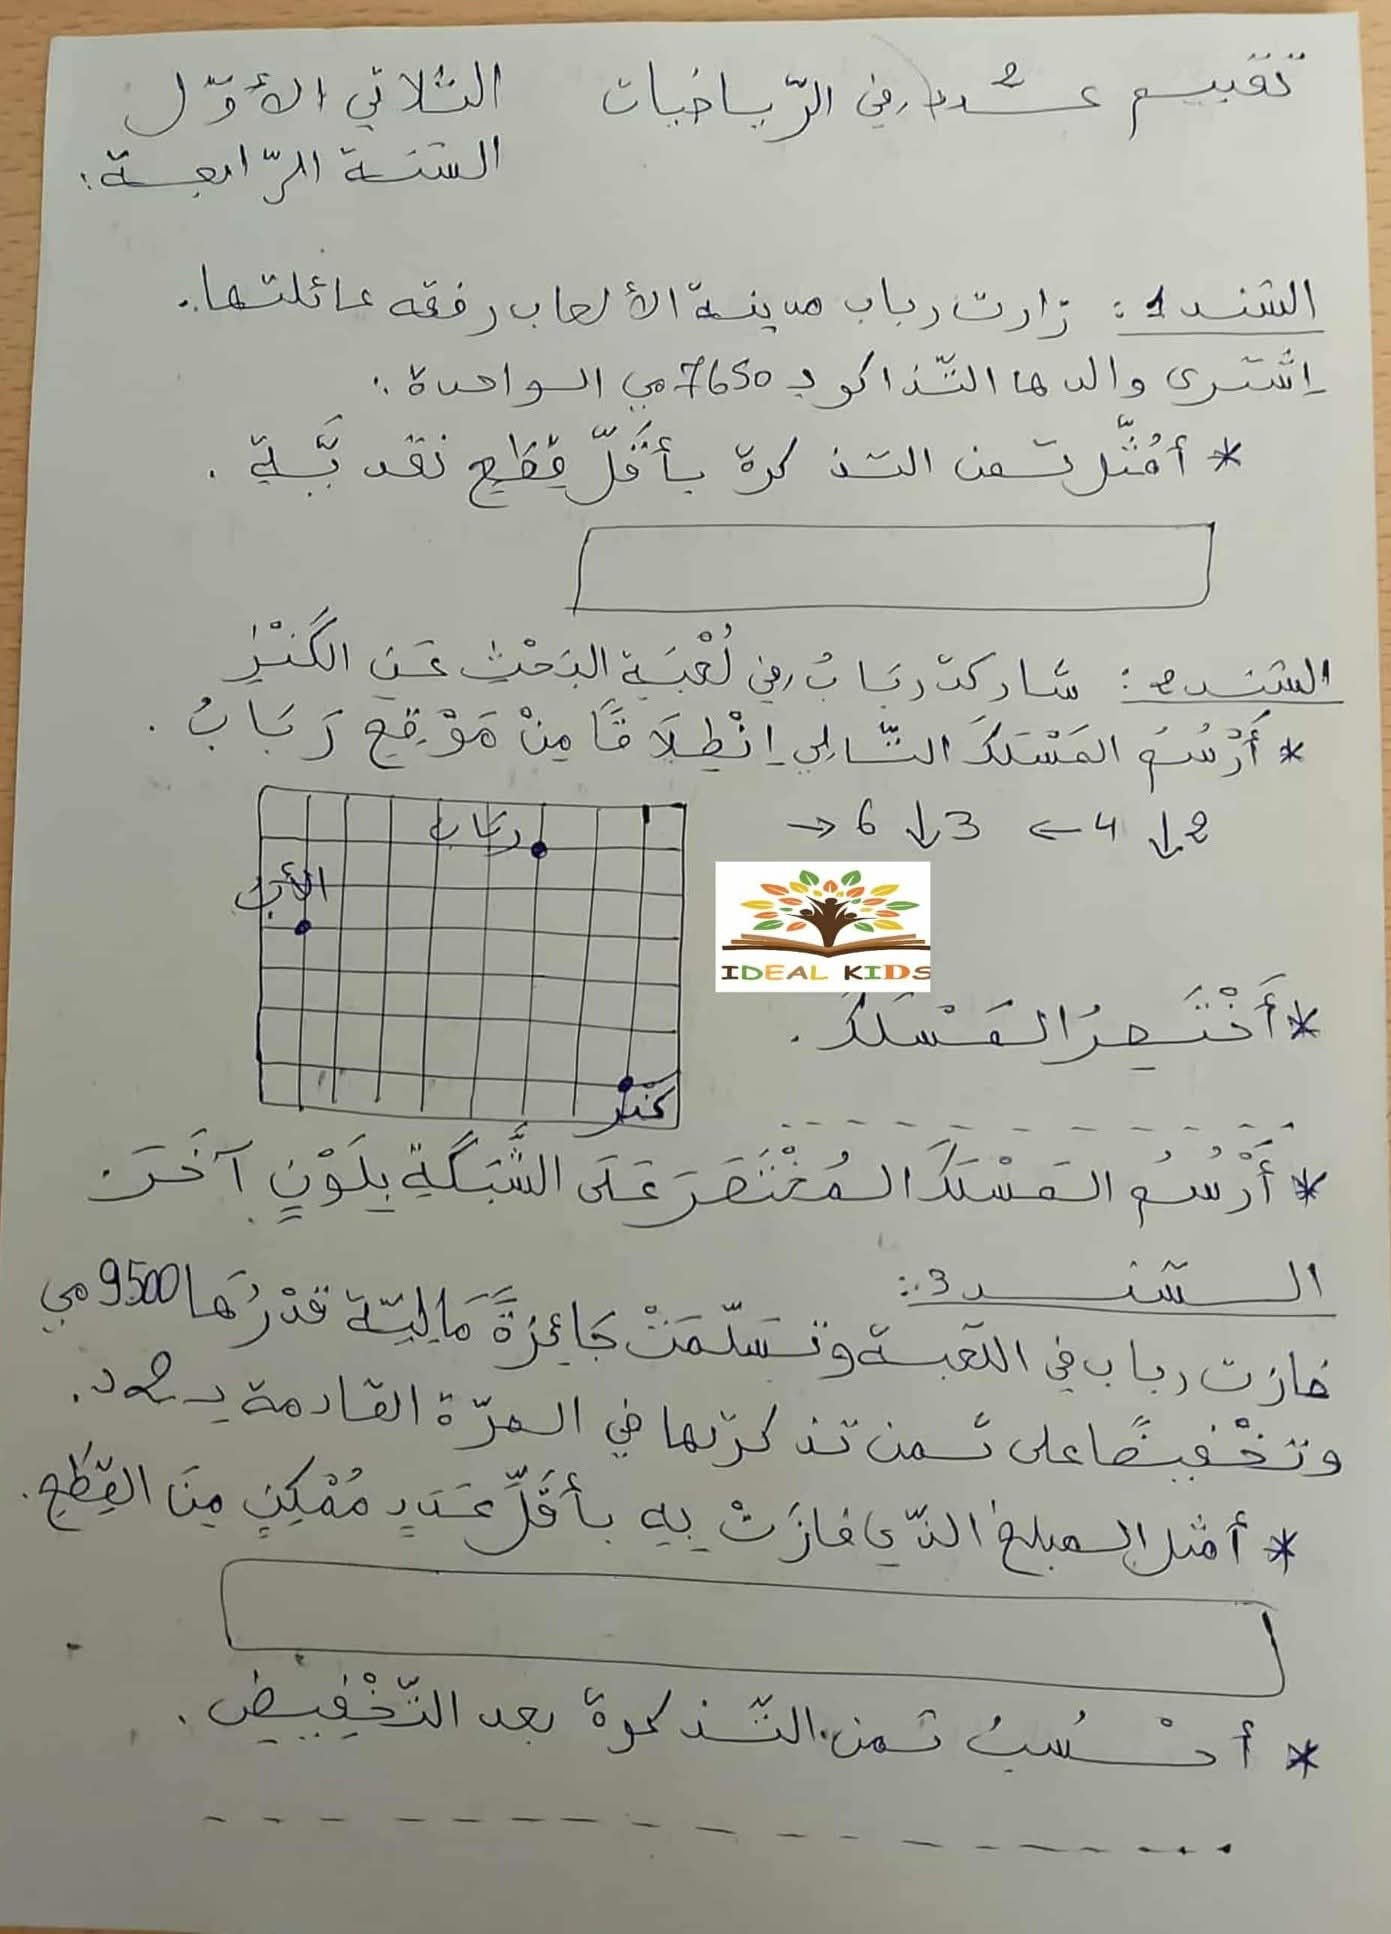 تقييم عــدد 2 في الرّياضيات الثلاثي الأوّل
السّنة الرّابعة:
السّند 1: زارت رباب مدينة الألعاب رفقة عائلتها.
اِشترى والدها التّذاكر بـ 7650 مي الواحدة.
* أُمَثِّل ثمن التذكرة بأَقَلّ قِطَعٍ نقديَّة.
السّند 2: شاركت ربَابُ في لُعْبَةِ البَحْثِ عَنِ الكَنْزِ
* أَرْسُمُ المَسْلَكَ التّالي اِنْطِلَاقًا مِنْ مَوْقِعِ رَبَابُ.
2↓ 4← 3↓ 6→
ربَاب
الأب
كنز
IDEAL KIDS
* أَخْتَصِرُ المَسْلَكَ.
* أَرْسُمُ المَسْلَكَ المُخْتَصَرَ عَلَى الشَّبَكَةِ بِلَوْنٍ آخَرَ.
السّند 3:
فازت رباب في اللّعبة وتسَلّمَتْ جَائِزَةً مَالِيّة قدْرُهَا 9500 مي
وتخْفيضًا على ثمن تذكرتها في المرّة القادمة بـ 2د.
* أمثل المبلغ الذّي فازَتْ بِهِ بأقَلِّ عَدَدٍ مُمْكِنٍ مِنَ القِطَعِ.
* أحْسُبُ ثمن التّذكرة بعد التّخْفِيض.